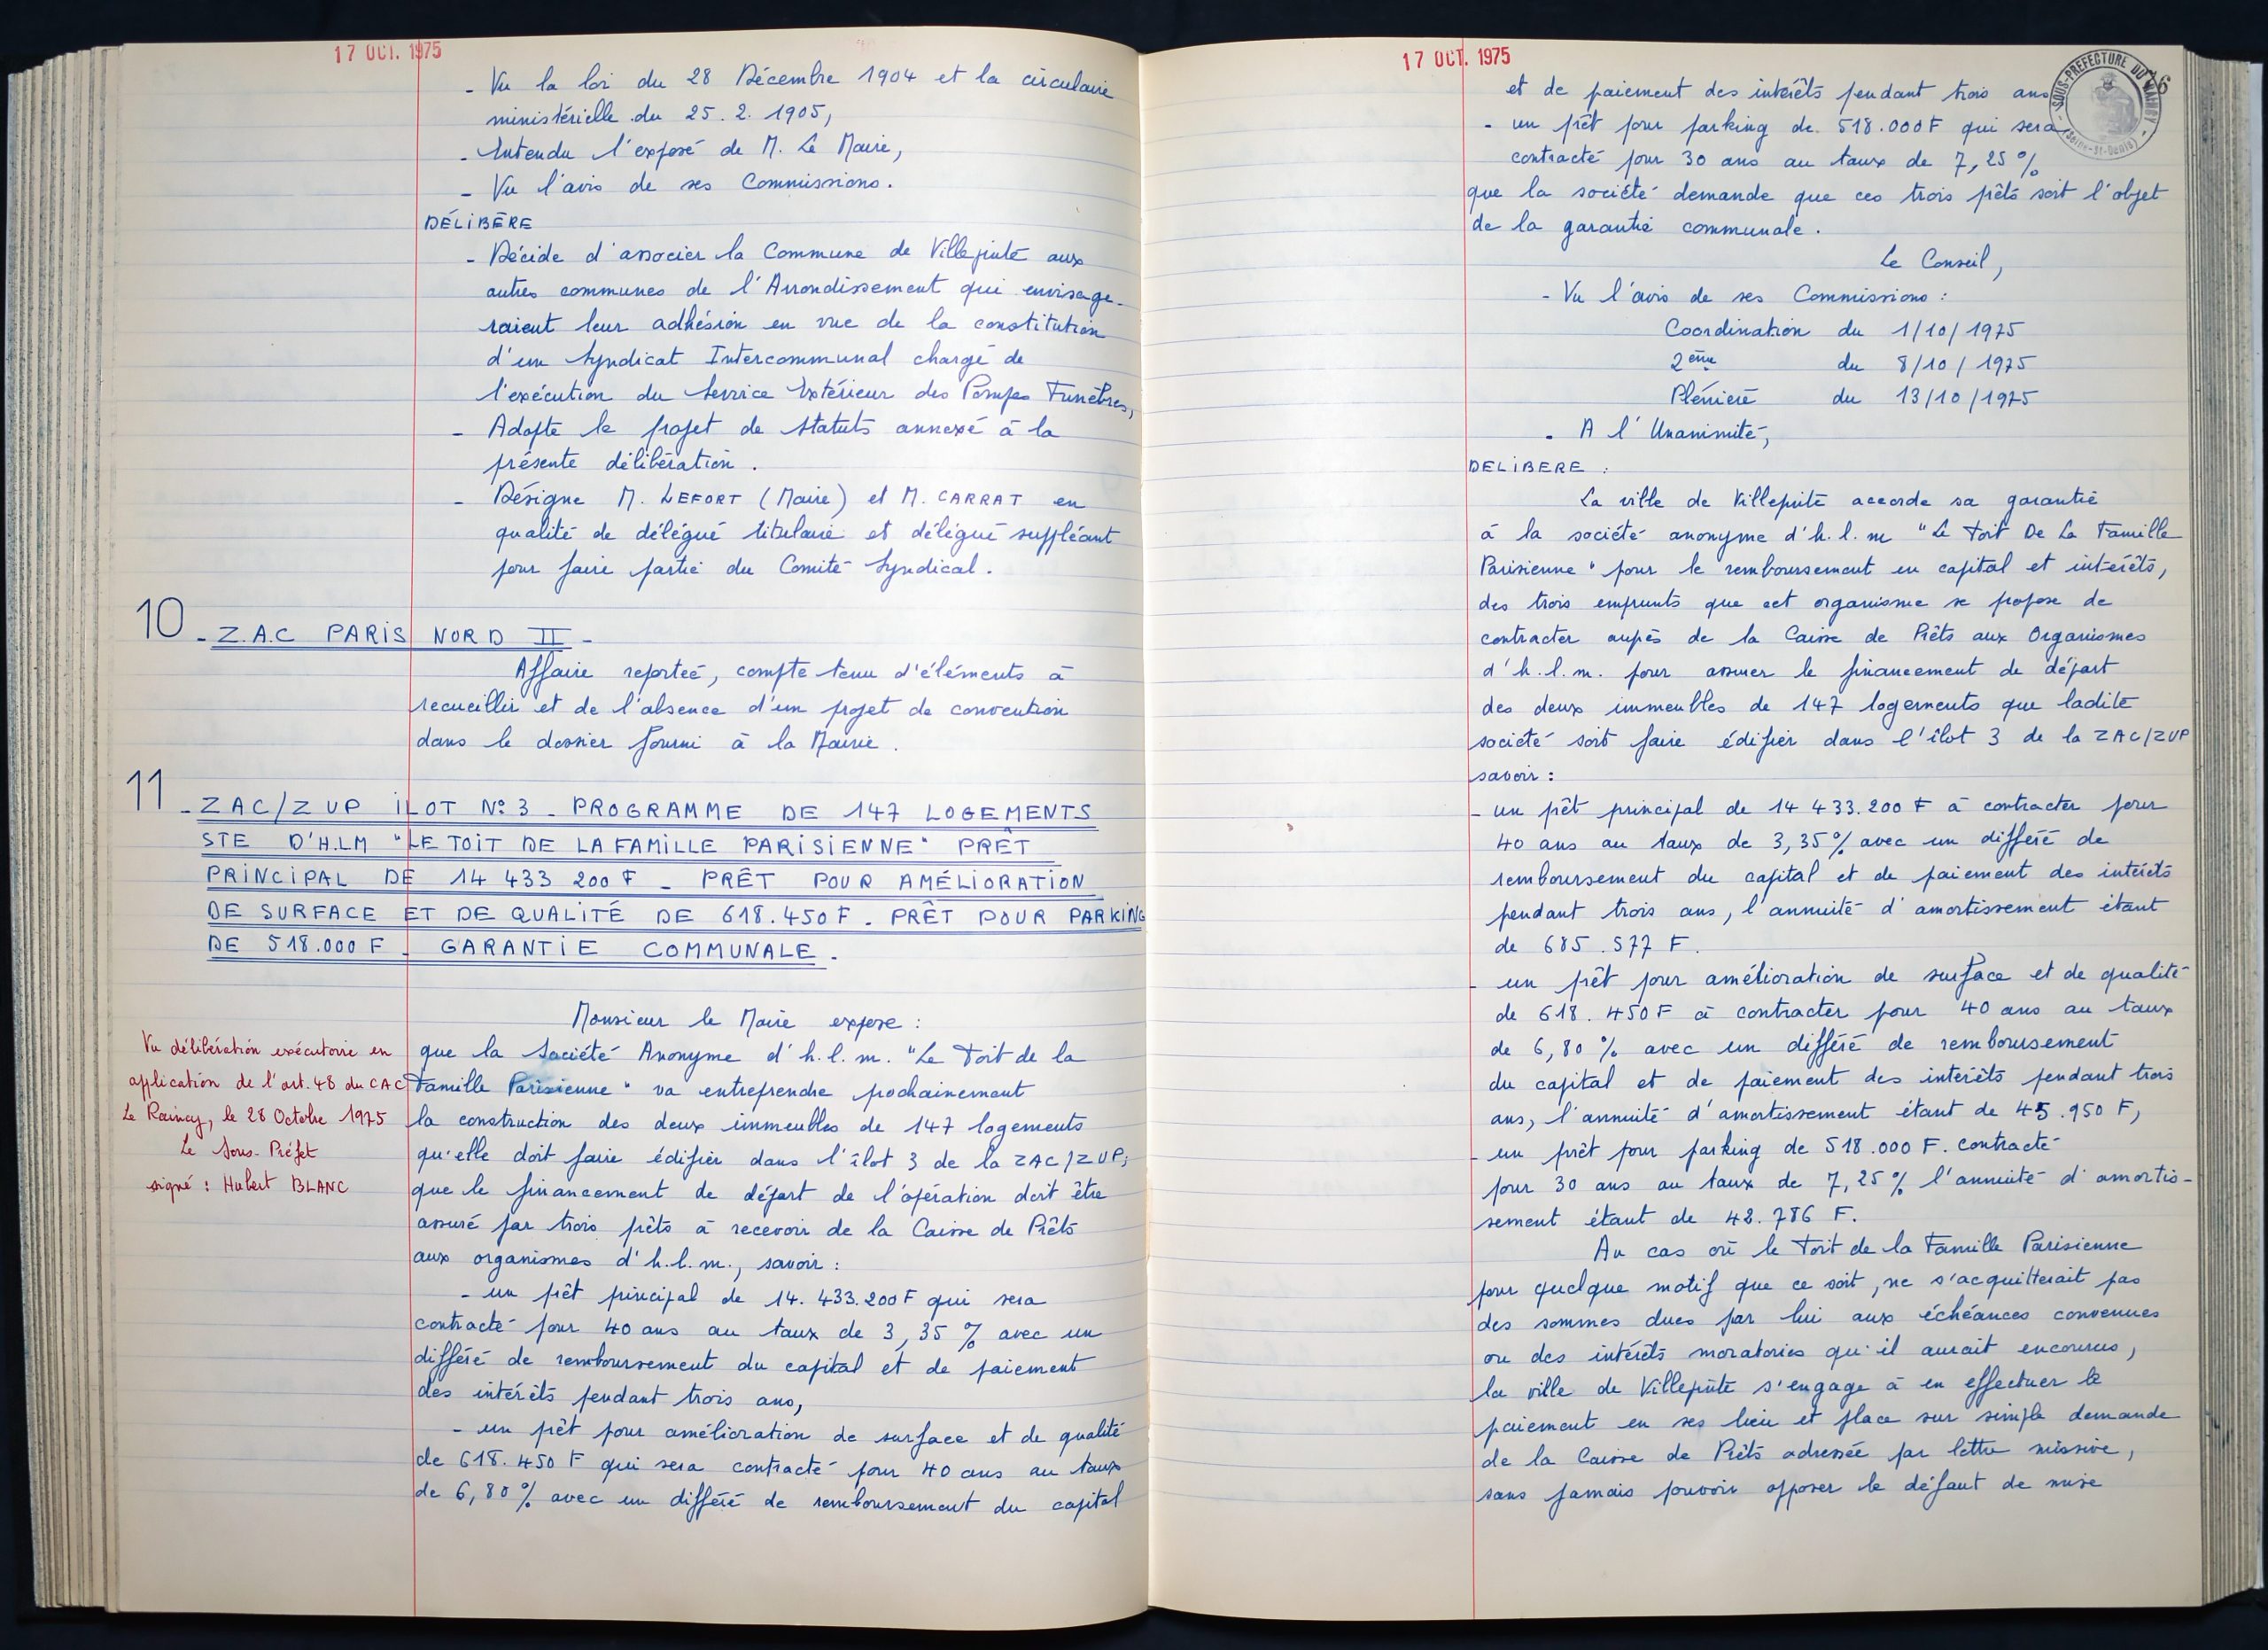 17 OCT. 1975
- Vu la loi du 28 Décembre 1904 et la circulaire
ministérielle du 25.2.1905,
- Entendu l'exposé de M. Le Maire,
- Vu l'avis de ses Commissions.
DÉLIBÈRE
- Décide d'associer la Commune de Villepinte aux
autres communes de l'Arrondissement qui envisage-
raient leur adhésion en vue de la constitution
d'un Syndicat Intercommunal chargé de
l'exécution du Service Extérieur des Pompes Funèbres,
- Adopte le projet de Statuts annexé à la
présente délibération.
- Désigne M. LEFORT (Maire) et M. CARRAT en
qualité de délégué titulaire et délégué suppléant
pour faire partie du Comité Syndical.
10 - Z.A.C PARIS NORD II -
Affaire reportée, compte tenu d'éléments à
recueillir et de l'absence d'un projet de convention
dans le dossier fourni à la Mairie.
11 - ZAC/ZUP ILOT N°3 - PROGRAMME DE 147 LOGEMENTS
STE D'H.LM "LE TOIT DE LA FAMILLE PARISIENNE" PRÊT
PRINCIPAL DE 14 433 200 F - PRÊT POUR AMÉLIORATION
DE SURFACE ET DE QUALITÉ DE 618.450 F - PRÊT POUR PARKING
DE 518.000 F - GARANTIE COMMUNALE.
Monsieur le Maire expose :
Vu délibération exécutoire en
application de l'art. 48 du CAC
Le Raincy, le 28 Octobre 1975
Le Sous-Préfet
signé : Hubert BLANC
que la Société Anonyme d'h.l.m. "Le Toit de la
Famille Parisienne" va entreprendre prochainement
la construction des deux immeubles de 147 logements
qu'elle doit faire édifier dans l'îlot 3 de la ZAC/ZUP;
que le financement de départ de l'opération doit être
assuré par trois prêts à recevoir de la Caisse de Prêts
aux organismes d'h.l.m., savoir :
- un prêt principal de 14.433.200 F qui sera
contracté pour 40 ans au taux de 3,35 % avec un
différé de remboursement du capital et de paiement
des intérêts pendant trois ans,
- un prêt pour amélioration de surface et de qualité
de 618.450 F qui sera contracté pour 40 ans au taux
de 6,80 % avec un différé de remboursement du capital
17 OCT. 1975
SOUS-PREFECTURE DU RAINCY
(Seine-St-Denis)
et de paiement des intérêts pendant trois ans
- un prêt pour parking de 518.000 F qui sera
contracté pour 30 ans au taux de 7,25 %
que la société demande que ces trois prêts soit l'objet
de la garantie communale.
Le Conseil,
- Vu l'avis de ses Commissions :
Coordination du 1/10/1975
2ème du 8/10/1975
Plénière du 13/10/1975
- A l'Unanimité,
DELIBERE :
La ville de Villepinte accorde sa garantie
à la société anonyme d'h.l.m "Le Toit De La Famille
Parisienne" pour le remboursement en capital et intérêts,
des trois emprunts que cet organisme se propose de
contracter aupès de la Caisse de Prêts aux Organismes
d'h.l.m. pour assurer le financement de départ
des deux immeubles de 147 logements que ladite
société soit faire édifier dans l'îlot 3 de la ZAC/ZUP
savoir :
- un prêt principal de 14 433.200 F à contracter pour
40 ans au taux de 3,35 % avec un différé de
remboursement du capital et de paiement des intérêts
pendant trois ans, l'annuité d'amortissement étant
de 685.577 F.
- un prêt pour amélioration de surface et de qualité
de 618.450 F à contracter pour 40 ans au taux
de 6,80 % avec un différé de remboursement
du capital et de paiement des intérêts pendant trois
ans, l'annuité d'amortissement étant de 45.950 F,
- un prêt pour parking de 518.000 F. contracté
pour 30 ans au taux de 7,25 % l'annuité d'amortis-
sement étant de 42.786 F.
Au cas où le Toit de la Famille Parisienne
pour quelque motif que ce soit, ne s'acquitterait pas
des sommes dues par lui aux échéances convenues
ou des intérêts moratories qu'il aurait encourus,
la ville de Villepinte s'engage à en effectuer le
paiement en ses lieu et place sur simple demande
de la Caisse de Prêts adressée par lettre missive,
sans jamais pouvoir opposer le défaut de mise